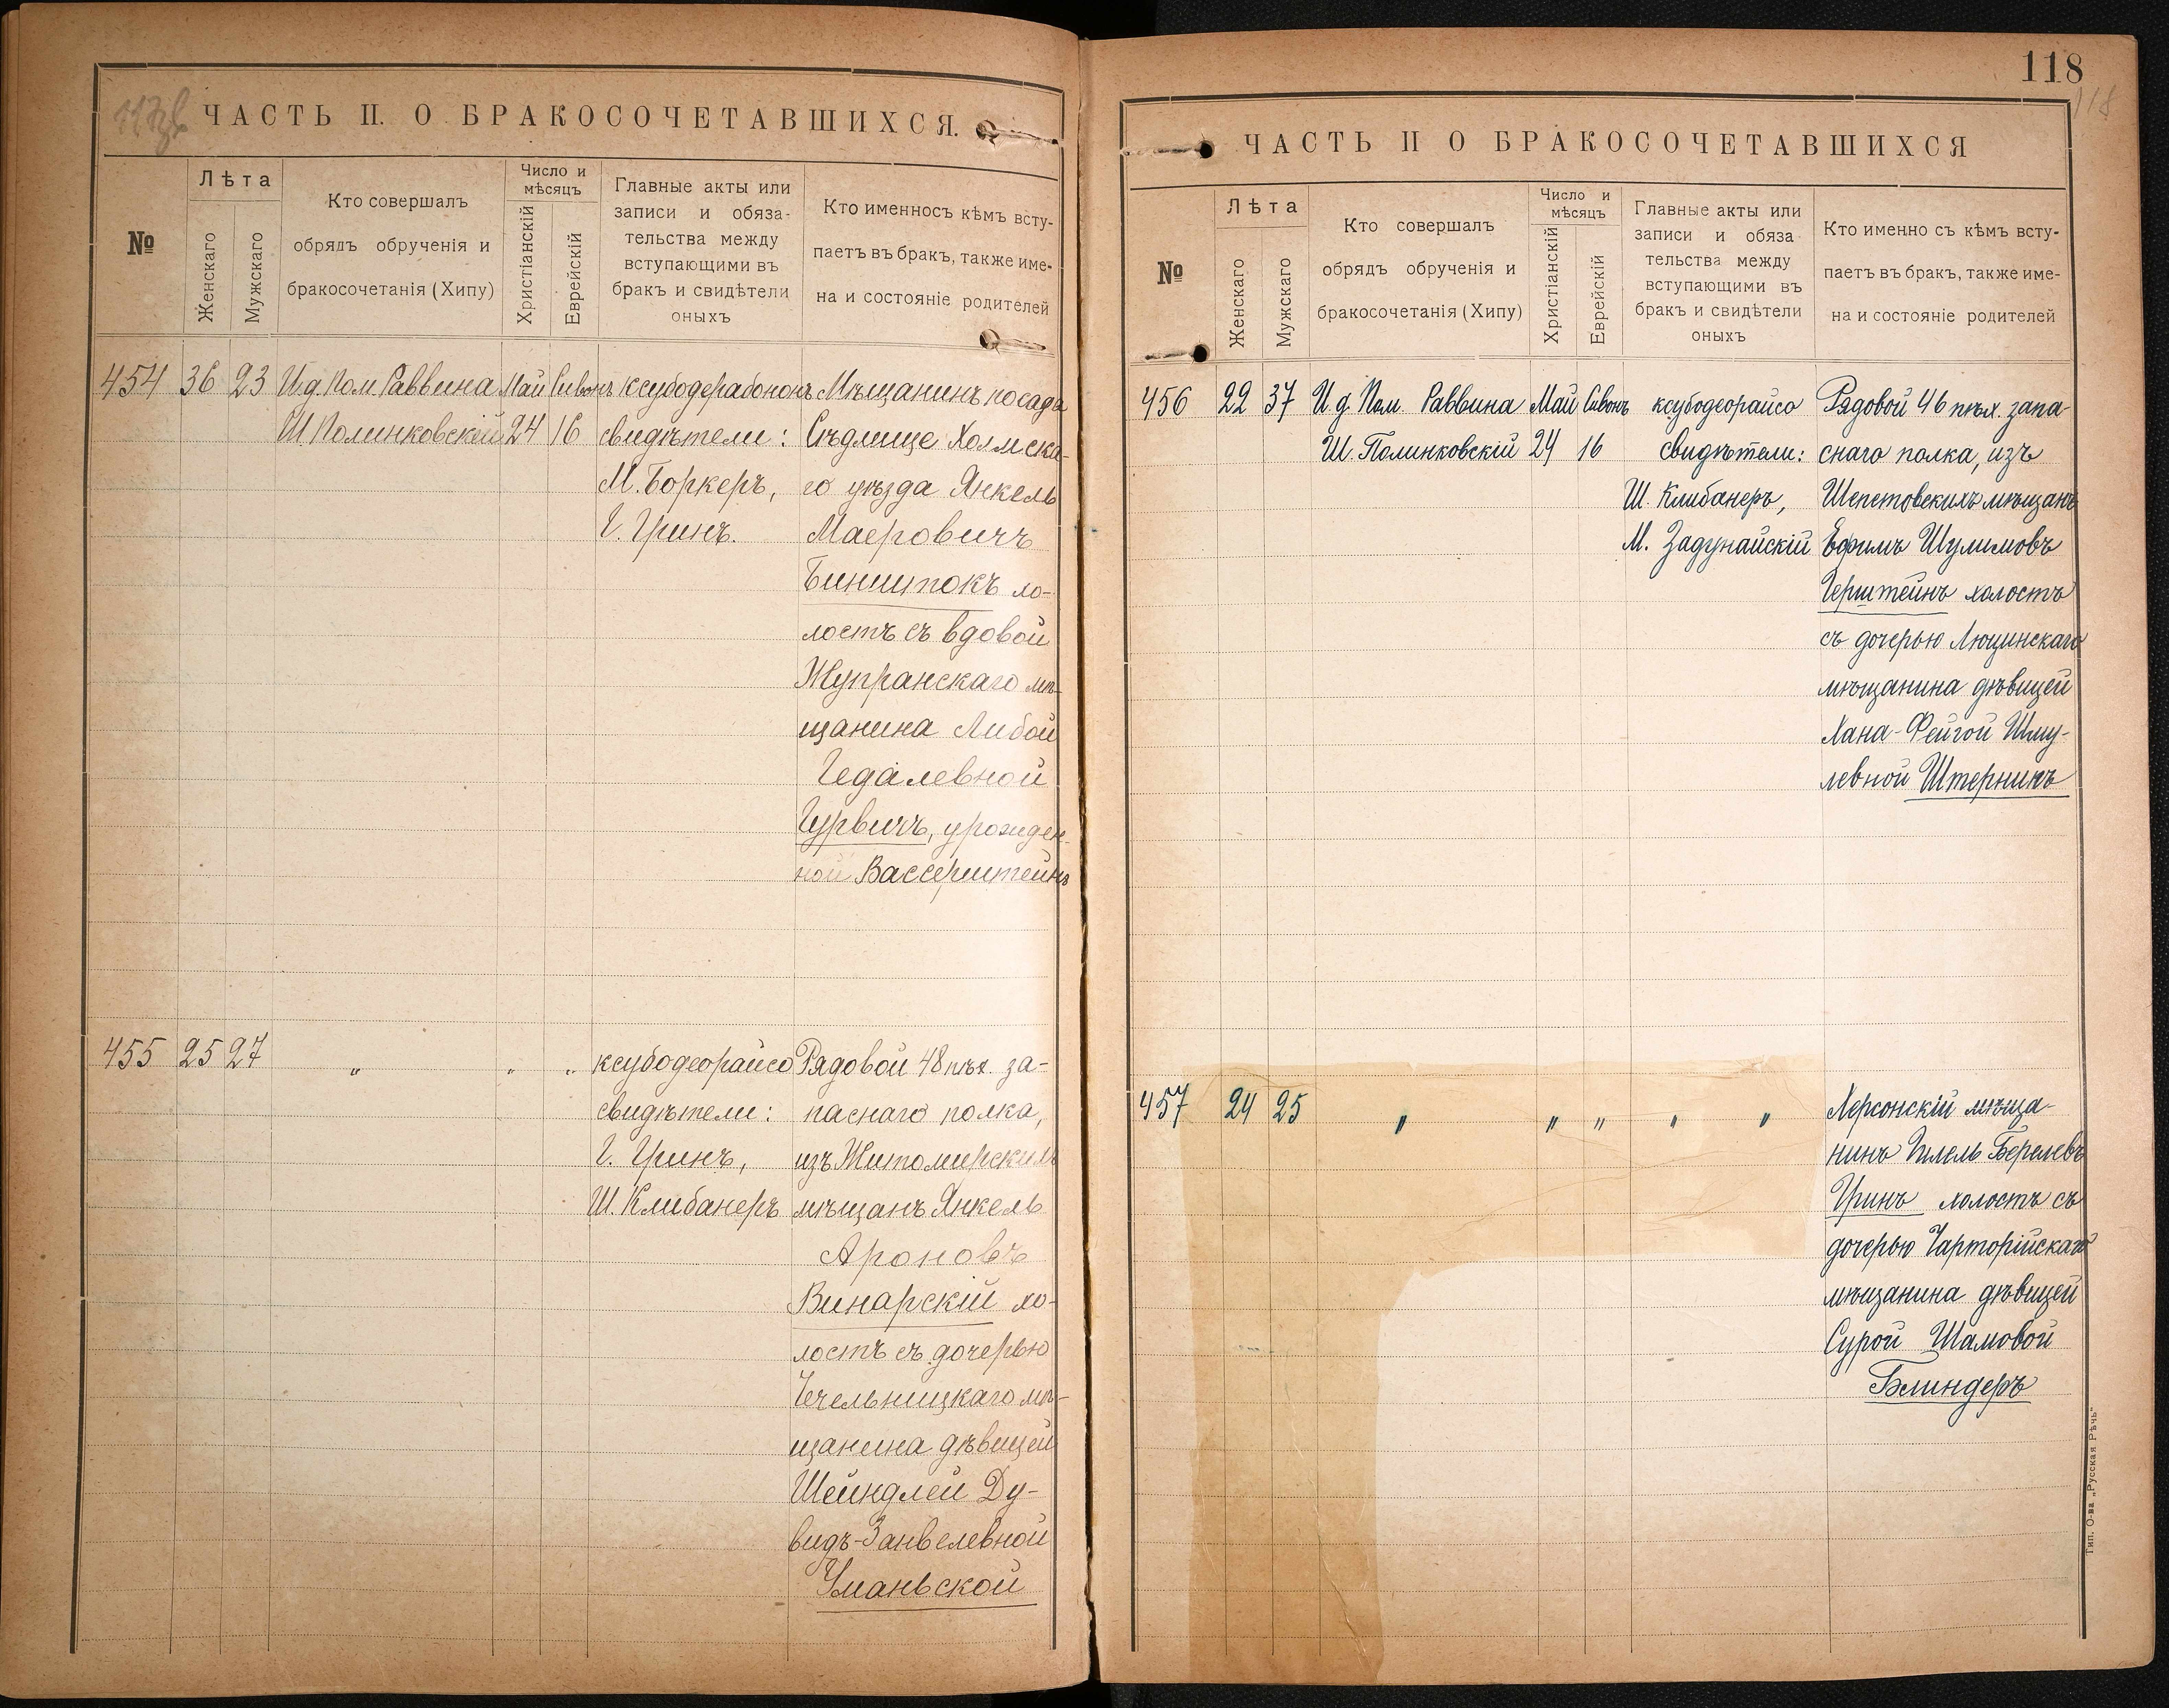 ЧАСТЬ II. О БРАКОСОЧЕТАВШИХСЯ.
№
Лѣта
Женскаго
Мужскаго
Кто совершалъ
обрядъ обрученія и
бракосочетанія (Хипу)
Число и
мѣсяцъ
Христіанскій
Еврейскій
Главные акты или
записи и обяза-
тельства между
вступающими въ
бракъ и свидѣтели
оныхъ
Кто именно съ кѣмъ всту-
паетъ въ бракъ, также име-
на и состояніе родителей
454 36 23
И.д. Пом. Раввина
Ш Полинковскій
Май
24
Сивонъ
16
ксубодерабононъ
свидѣтели:
М. Боркеръ,
Г. Гринъ.
Мѣщанинъ посада
Сѣдлище Холмска-
го уѣзда Янкель
Маеровичъ
Бинштокъ хо-
лостъ съ вдовой
Жупранскаго мѣ-
щанина Либой
Гедалевной
Гурвичъ, урожден-
ной Вассерштейнъ
455 25 27
„ „ „
ксубодеорайсо
свидѣтели:
Г. Гринъ,
Ш. Клибанеръ
Рядовой 48 пѣх. за-
паснаго полка,
изъ Житомирскихъ
мѣщанъ Янкель
Ароновъ
Винарскій хо-
лостъ съ дочерью
Чечельницкаго мѣ-
щанина дѣвицей
Шейндлей Ду-
видъ-Занвелевной
Уманьской
118
118
ЧАСТЬ II О БРАКОСОЧЕТАВШИХСЯ
№
Лѣта
Женскаго
Мужскаго
Кто совершалъ
обрядъ обрученія и
бракосочетанія (Хипу)
Число и
мѣсяцъ
Христіанскій
Еврейскій
Главные акты или
записи и обяза
тельства между
вступающими въ
бракъ и свидѣтели
оныхъ
Кто именно съ кѣмъ всту-
паетъ въ бракъ, также име-
на и состояніе родителей
456 22 37
И.д. Пом. Раввина
Ш. Полинковскій
Май
24
Сивонъ
16
ксубодеорайсо
свидѣтели:
Ш. Клибанеръ,
М. Задунайскій
Рядовой 46 пѣх. запа-
снаго полка, изъ
Шепетовскихъ мѣщанъ
Ефимъ Шулимовъ
Герштейнъ холостъ
съ дочерью Люцинскаго
мѣщанина дѣвицей
Хана-Фейгой Шму-
левной Штерникъ
457 24 25
„ „ „ „ „
Херсонскій мѣща-
нинъ Гилель Берелевъ
Гринъ холостъ съ
дочерью Чарторійскаго
мѣщанина дѣвицей
Сурой Шамовой
Блиндеръ
Тип. О-ва „Русская Рѣчь“